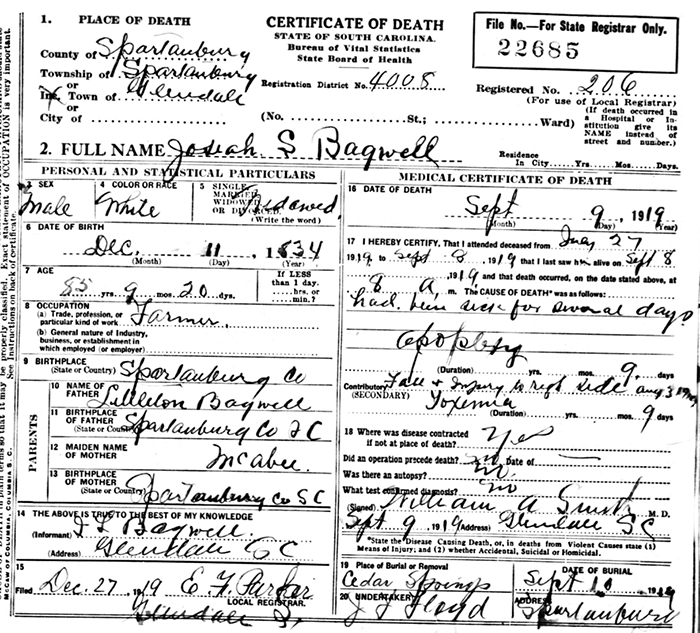 1. PLACE OF DEATH
County of Spartanburg
Township of Spartanburg
or
Inc. Town of Glendale
or
City of
CERTIFICATE OF DEATH
STATE OF SOUTH CAROLINA.
Bureau of Vital Statistics
State Board of Health
File No.—For State Registrar Only.
22685
Registration District No. 4008
Registered No. 206
(For use of Local Registrar)
(No. St.; Ward)
(If death occurred in a Hospital or Institution give its NAME instead of street and number.)
2. FULL NAME Josiah S Bagwell
Residence In City Yrs. Mos. Days.
PERSONAL AND STATISTICAL PARTICULARS
3 SEX
Male
4 COLOR OR RACE
White
5 SINGLE, MARRIED, WIDOWED OR DIVORCED. Widowed
(Write the word)
6 DATE OF BIRTH
Dec 11, 1834
(Month) (Day) (Year)
7 AGE
85 yrs. 9 mos. 20 dys.
If LESS than 1 day. hrs. or min.?
8 OCCUPATION
(a) Trade, profession, or particular kind of work Farmer
(b) General nature of Industry, business, or establishment in which employed (or employer)
9 BIRTHPLACE
(State or Country) Spartanburg Co
PARENTS
10 NAME OF FATHER Littleton Bagwell
11 BIRTHPLACE OF FATHER
(State or Country) Spartanburg Co SC
12 MAIDEN NAME OF MOTHER McAbee
13 BIRTHPLACE OF MOTHER
(State or Country) Spartanburg Co SC
14 THE ABOVE IS TRUE TO THE BEST OF MY KNOWLEDGE
(Informant) Bagwell
(Address) Glendale SC
15
Filed Dec. 27 1919 E. F. Parker
LOCAL REGISTRAR.
Glendale S.C.
MEDICAL CERTIFICATE OF DEATH
16 DATE OF DEATH
Sept 9, 1919
(Month) (Day) (Year)
17 I HEREBY CERTIFY, That I attended deceased from 27
1919 to Sept 8 1919 that I last saw him alive on Sept 8
1919 and that death occurred, on the date stated above, at
8 A. m. The CAUSE OF DEATH* was as follows:
had been sick for several days
Apoplexy
(Duration) yrs. mos. 9 days
Contributory Fall & Injury to right side Aug 3 1919
(SECONDARY) Toxemia
(Duration) yrs. mos. 9 days
18 Where was disease contracted if not at place of death? Yes
Did an operation precede death? no Date of —
Was there an autopsy? no
What test confirmed diagnosis? no
(Signed) William A Smith M. D.
Sept. 9 1919 (Address) Glendale SC
*State the Disease Causing Death, or, in deaths from Violent Causes state (1) Means of Injury; and (2) whether Accidental, Suicidal or Homicidal.
19 Place of Burial or Removal
Cedar Springs
DATE OF BURIAL
Sept 10 1919
20 UNDERTAKER
J F Floyd
ADDRESS
Spartanburg